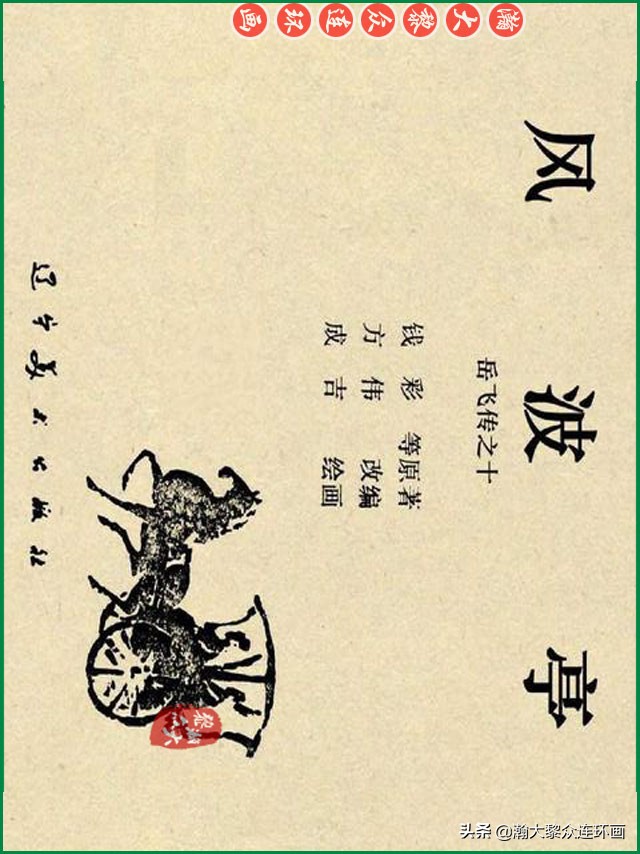 瀚大黎众连环画
风波亭
岳飞传之十
钱彩 等原著
方伟 改编
成吉 绘画
辽宁美术出版社
头条 @瀚大黎众连环画